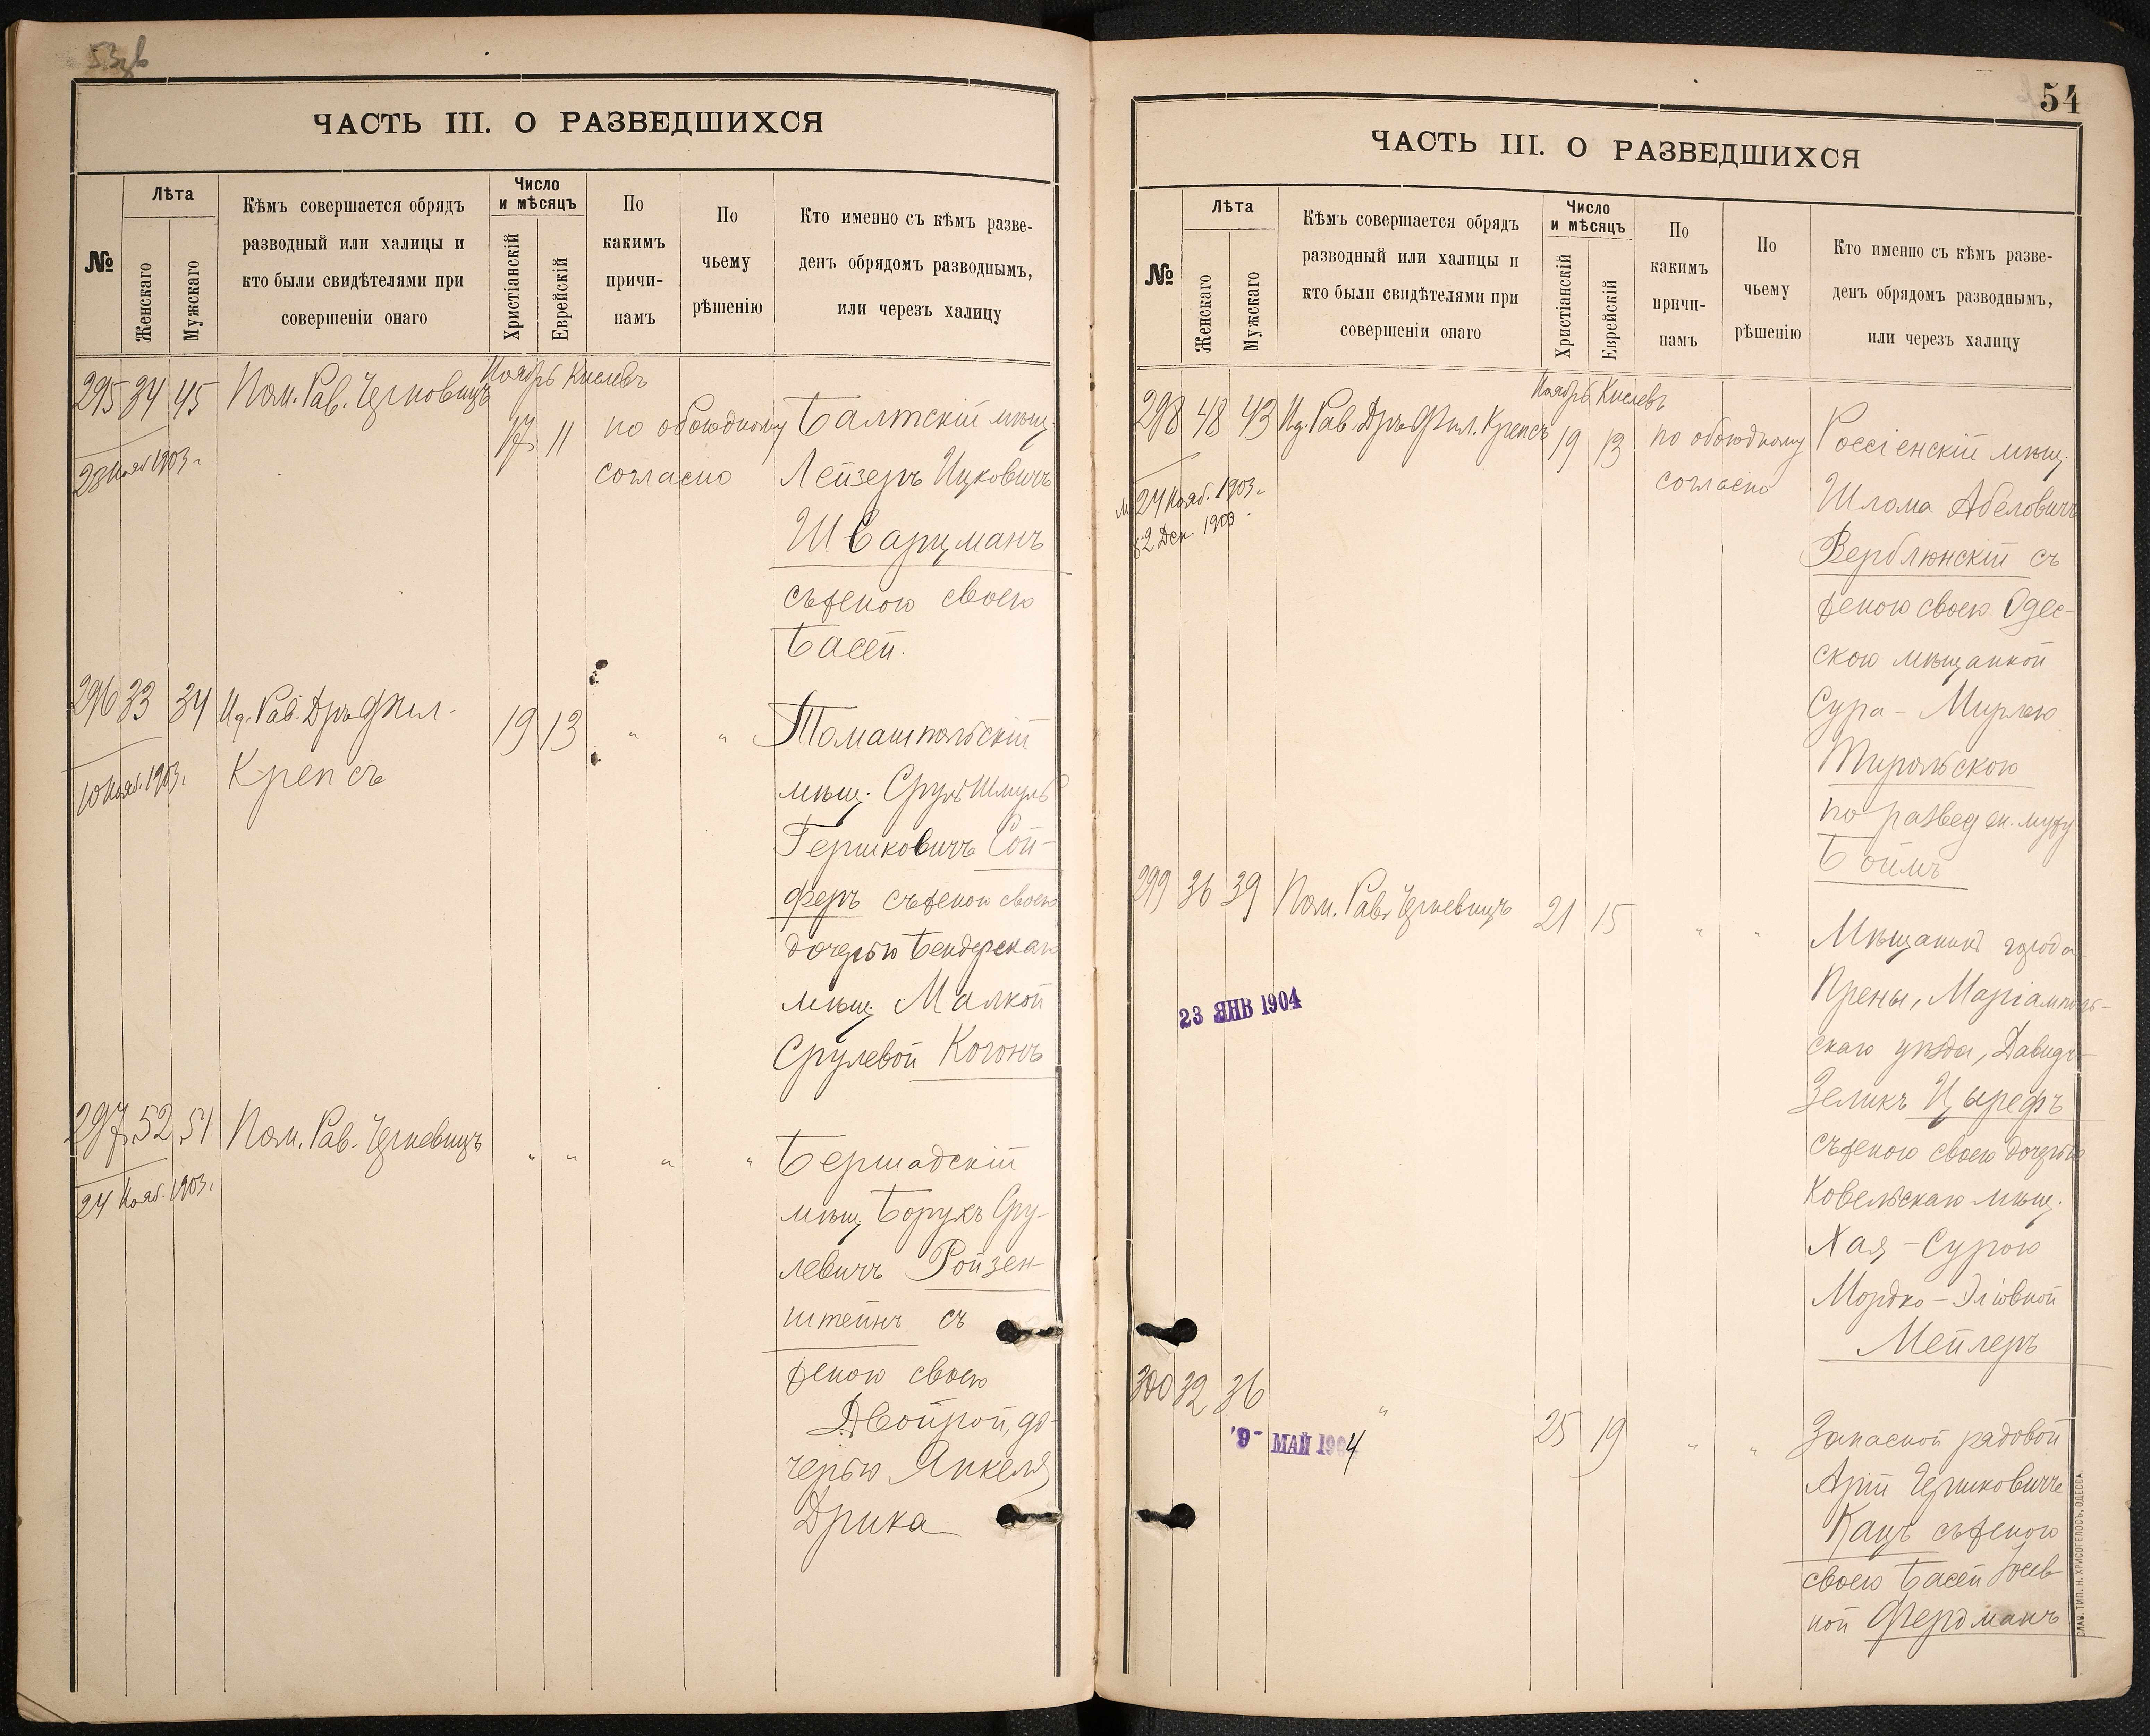 53
ЧАСТЬ III. О РАЗВЕДШИХСЯ
№
Лѣта
Женскаго
Мужскаго
Кѣмъ совершается обрядъ
разводный или халицы и
кто были свидѣтелями при
совершеніи онаго
Число
и мѣсяцъ
Христіанскій
Еврейскій
По
какимъ
причи-
намъ
По
чьему
рѣшенію
Кто именно съ кѣмъ разве-
денъ обрядомъ разводнымъ,
или черезъ халицу
Ноябрь Кислевъ
295 34 45 Пом. Рав. Черновицъ 17 11 по обоюдному Балтскій мѣщ.
согласію Лейзеръ Ицковичъ
Шварцманъ
съ женою своею
Басей.
296 33 34 Ид. Рав. Дръ Фил. 19 13 " " Томашпольскій
Крепсъ
10 Нояб. 1903 г.
мѣщ. Сруль Шмуль
Гершковичъ Сой-
феръ съ женою своею
дочерью Бендерскаго
мѣщ. Малкой
Срулевой Когонъ
297 52 51 Пом. Рав. Черновицъ " " " " Бершадскій
24 Нояб. 1903 г.
мѣщ. Борухъ Сру-
левичъ Ройзен-
штейнъ съ
женою своею
Двойрой, до-
черью Янкеля
Дрика
54
ЧАСТЬ III. О РАЗВЕДШИХСЯ
№
Лѣта
Женскаго
Мужскаго
Кѣмъ совершается обрядъ
разводный или халицы и
кто были свидѣтелями при
совершеніи онаго
Число
и мѣсяцъ
Христіанскій
Еврейскій
По
какимъ
причи-
намъ
По
чьему
рѣшенію
Кто именно съ кѣмъ разве-
денъ обрядомъ разводнымъ,
или черезъ халицу
Ноябрь Кислевъ
298 48 43 Ид. Рав. Дръ Фил. Крепсъ 19 13 по обоюдному Россіенскій мѣщ.
согласію
24 Нояб. 1903 г.
2 Дек. 1903
Шлома Абеловичъ
Верблюнскій съ
женою своею Одес-
скою мѣщанкой
Сура - Мирлею
Тирольскою
по развед. мужу
Боймъ
299 36 39 Пом. Рав. Черновицъ 21 15 " " Мѣщанинъ города
23 ЯНВ 1904
Прены, Маріамполь-
скаго уѣзда, Давидъ-
Зеликъ Цырефъ
съ женою своею дочерью
Ковельскаго мѣщ.
Хая - Сурою
Мордко - Эліовной
Мейлеръ
300 32 36 " 25 19 " " Запасной рядовой
9 - МАЙ 1904
Арій Гершковичъ
Кацъ съ женою
своею Басей Іосев-
ной Фердманъ
СЛАВ. ТИП. Н. ХРИСОГЕЛОСЪ, ОДЕССА.